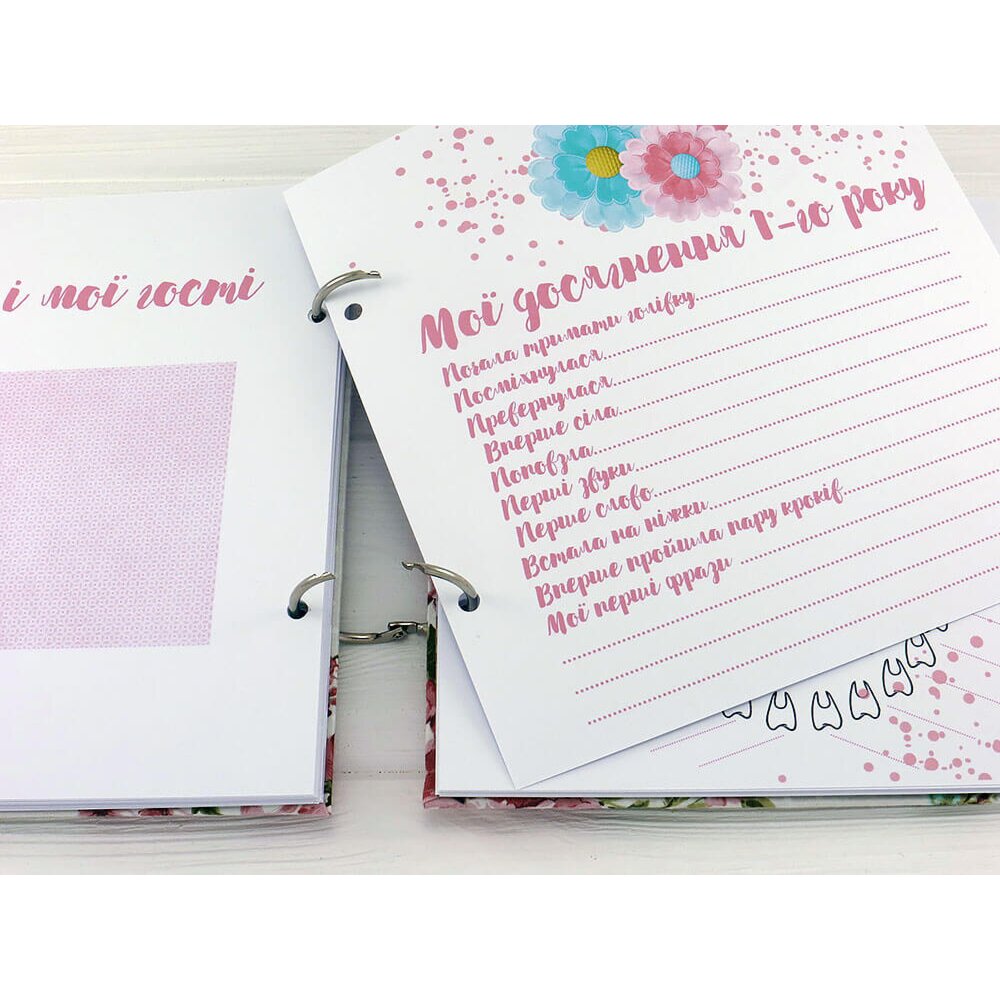 і мої гості
Мої досягнення 1-го року
Почала тримати голівку
Посміхнулася
Превернулася
Вперше сіла
Поповзла
Перші звуки
Перше слово
Встала на ніжки
Вперше пройшла пару кроків
Мої перші фрази